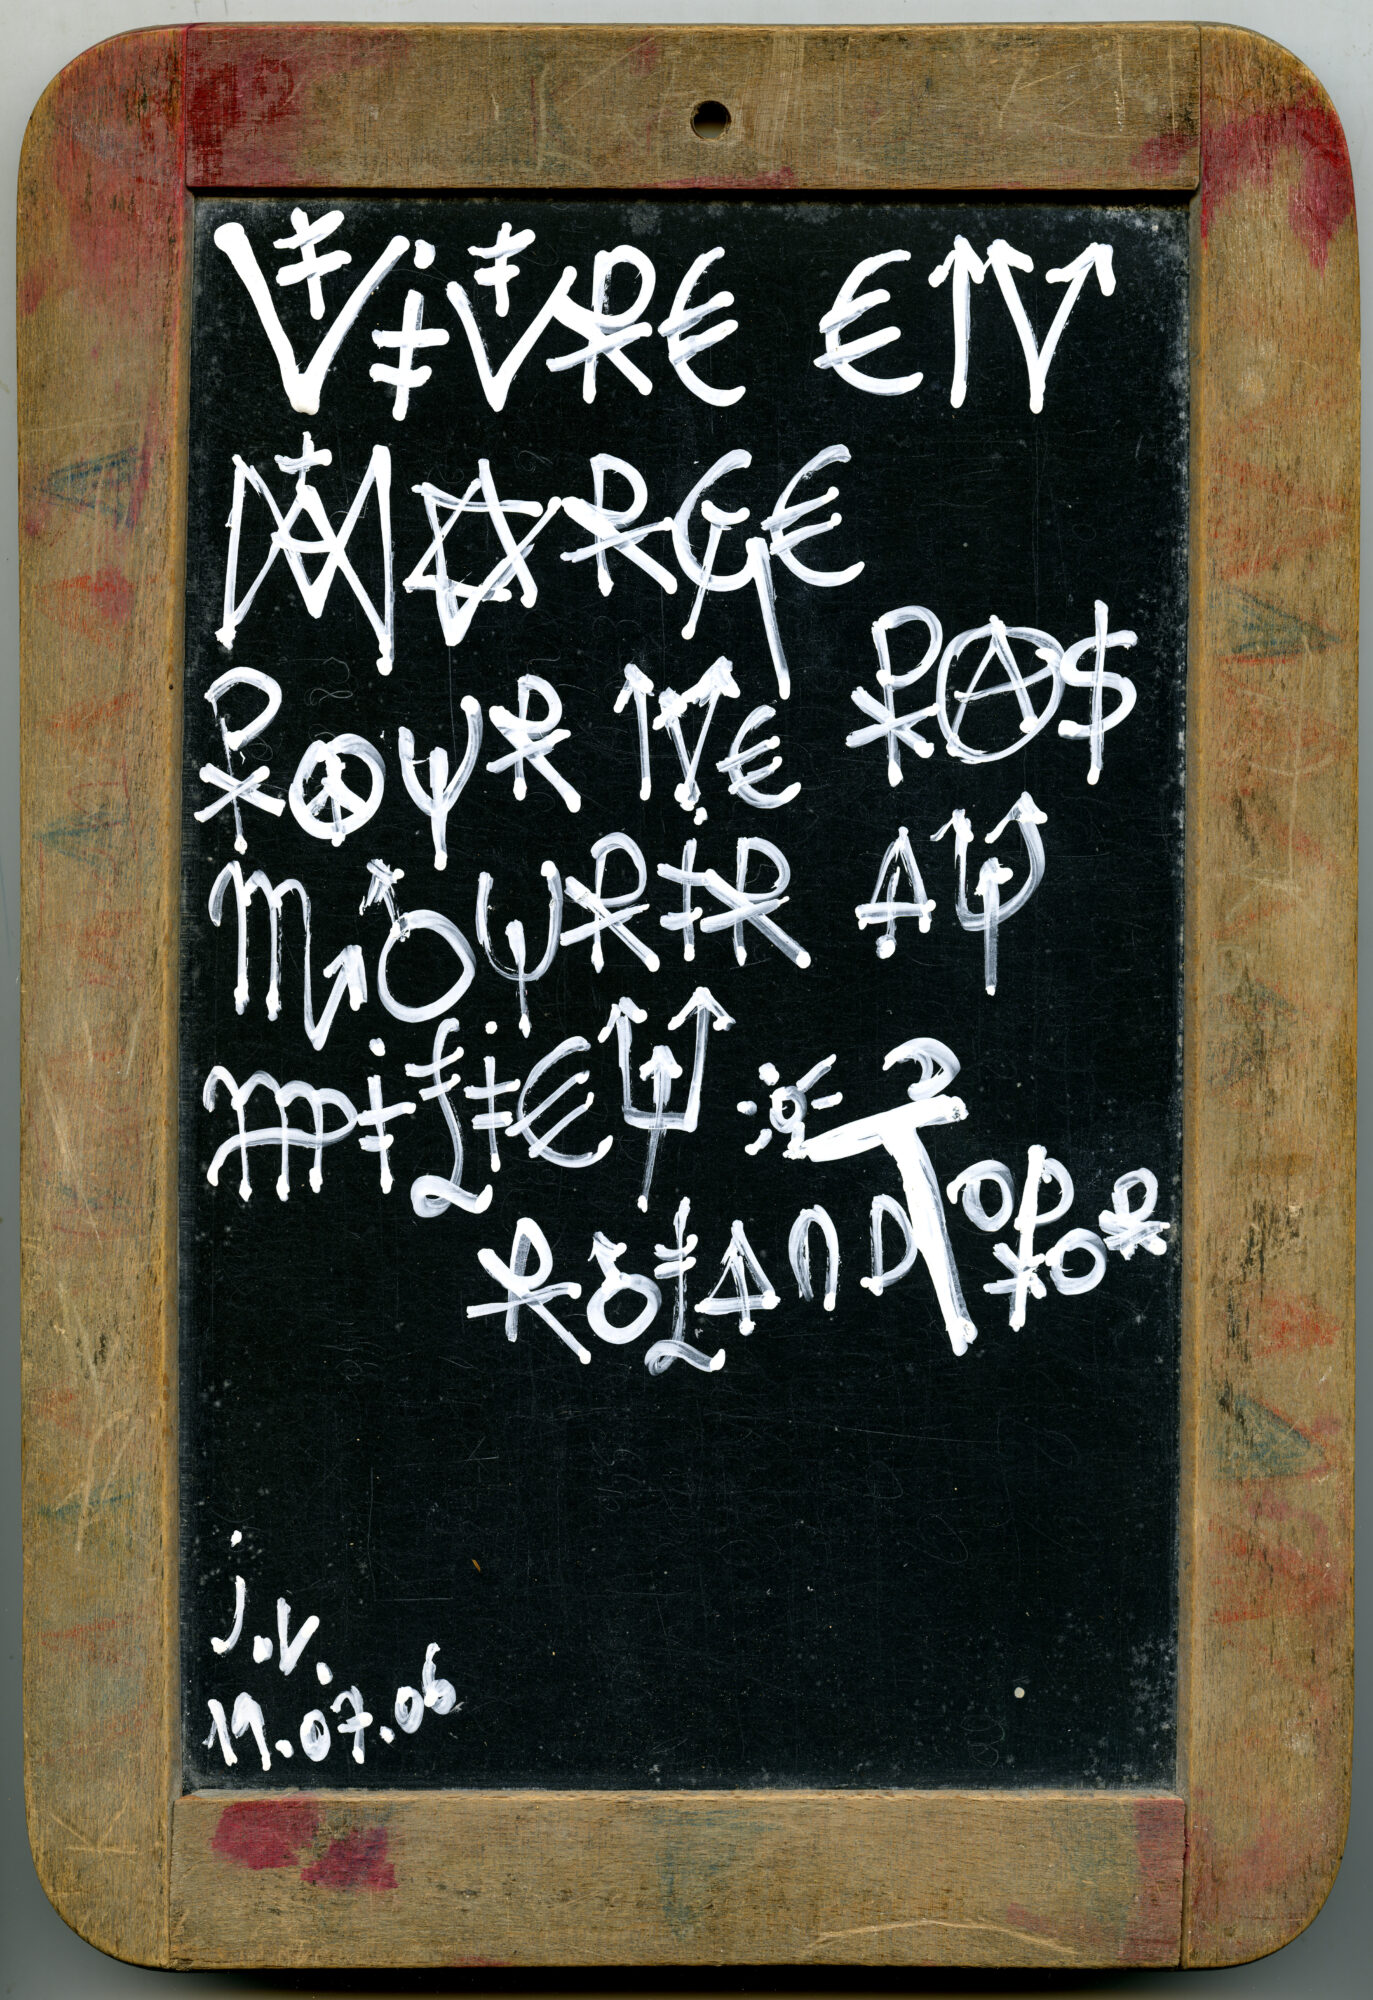 VIVRE EN
MARGE
POUR NE PAS
MOURIR AU
MILIEU
ROLAND TOPOR
J.V.
19.07.06